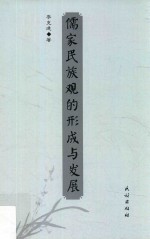 儒家民族观的形成与发展
李克建◆著
民族出版社